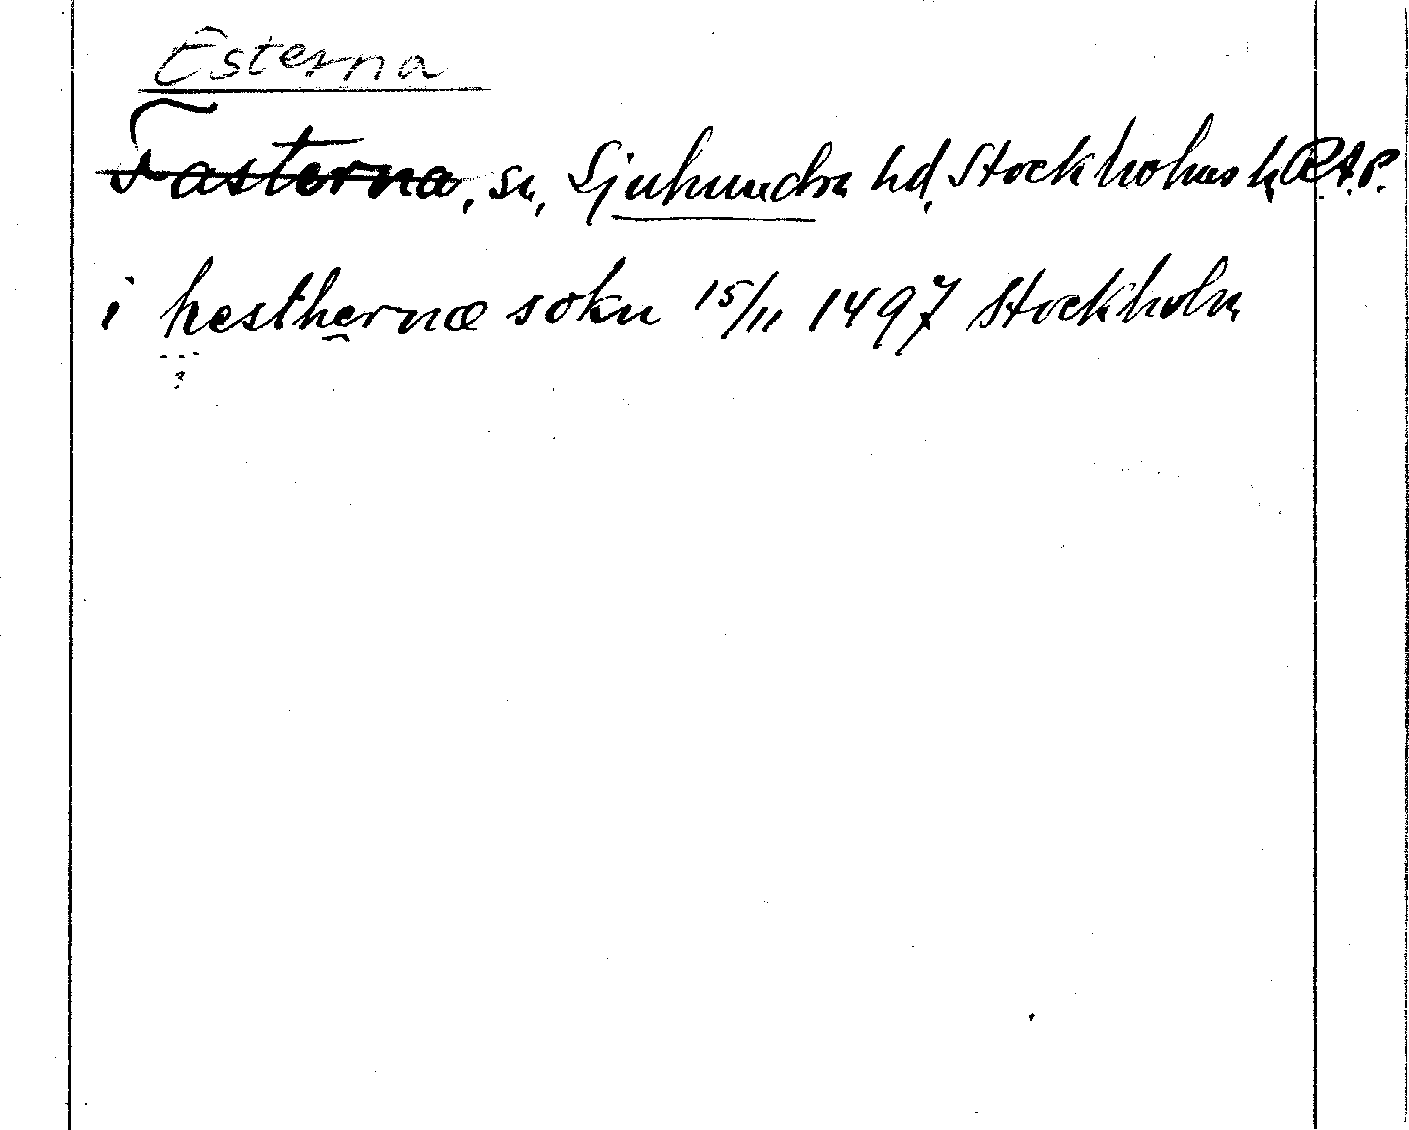 Esterna
Fasterna, sn, Sjuhundra hd, Stockholms l, RAP.
i hesthernæ sokn 15/11 1497 Stockholm
?